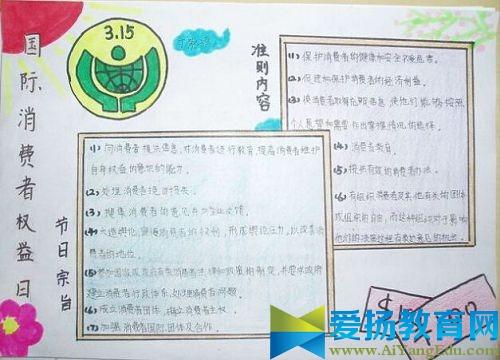 国际消费者权益日
3.15
准则内容
(1) 保护消费者的健康和安全不受危害。
(2) 促进和保护消费者的经济利益。
(3) 使消费者取得充足信息，使他们能够按照
个人愿望和需要作出掌握情况的选择。
(4) 消费者教育。
(5) 提供有效的消费者办法。
(6) 有组织消费者及其他有关的团体
或组织的自由，而这种组织对于影响
他们的决策过程有表达意见的机会。
节日宗旨
(1) 向消费者提供信息，对消费者进行教育，提高消费者维护
自身权益的意识和能力。
(2) 处理消费者投诉
(3) 搜集消费者的意见并
(4) 大造舆论，宣传消费者的权利，形成舆论压力，以改善消
费者的地位。
(5)
建立消费者行政体系，处理消费者问题。
(6) 成立消费者团体，确立消费者主权。
(7) 加强消费者国际团体及合作。
爱扬教育网
www.AiYangEdu.com